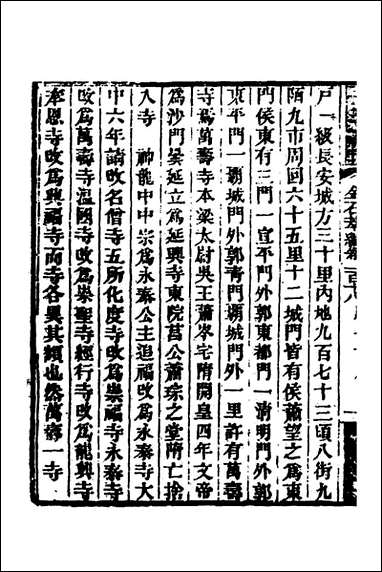 戶一級長安城方三十里內地九百七十三頃八街九
陌九市周回六十五里十二城門皆有侯蕭望之為東
門侯東有三門一宣平門外郭東都門一清明門外郭
東平門一霸城門外郭青門霸城門外一里許有萬壽
寺爲萬壽寺本梁太尉吳王蕭岑宅隋開皇四年文帝
爲沙門曇延立爲延興寺東院莒公蕭琮之堂隋亡捨
入寺 神龍中中宗爲永泰公主追福改爲永泰寺大
中六年請改名僧寺五所化度寺改爲崇福寺永泰寺
改爲萬壽寺溫國寺改爲崇聖寺經行寺改爲龍興寺
奉恩寺改爲興福寺而寺各異其類也然萬壽一寺